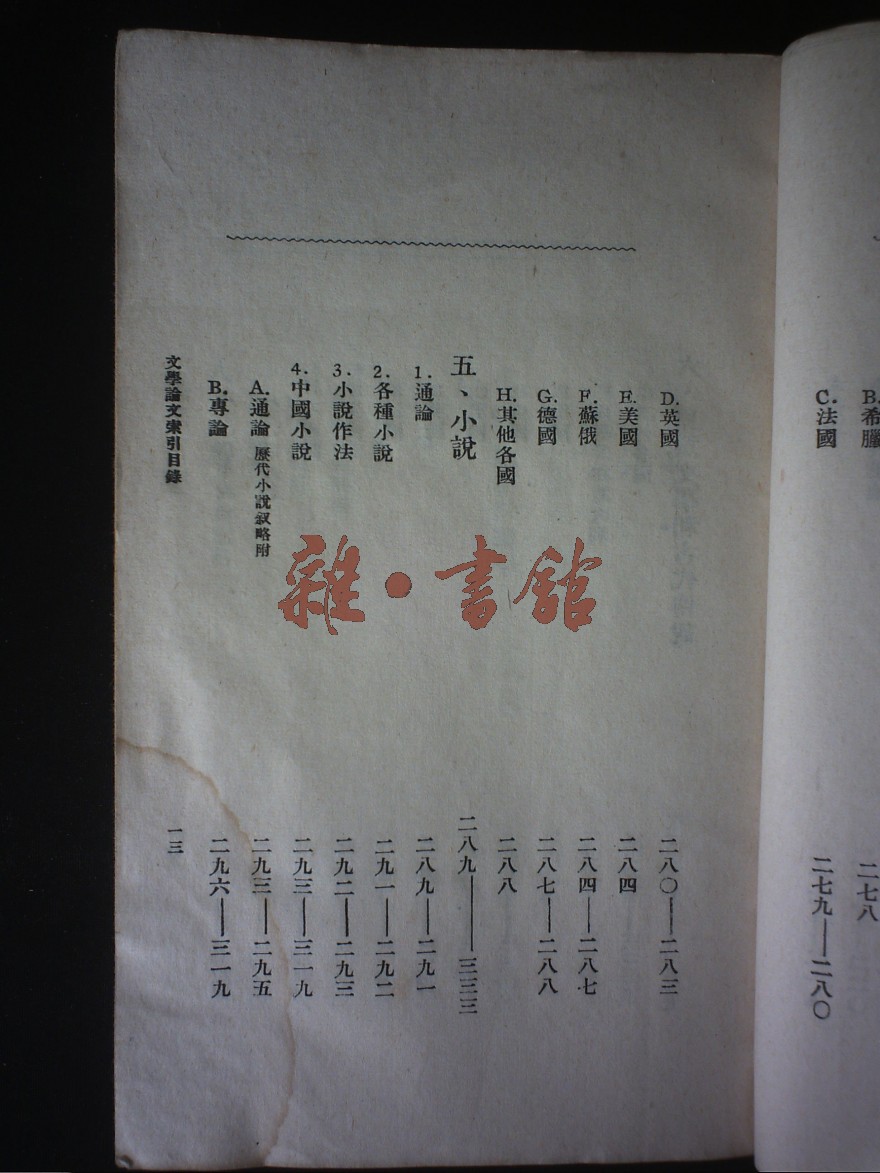 B.希臘 二七八
C.法國 二七九——二八〇
D.英國 二八〇——二八三
E.美國 二八四
F.蘇俄 二八四——二八七
G.德國 二八七——二八八
H.其他各國 二八八
五、小說 二八九——三三三
1.通論 二八九——二九一
2.各種小說 二九一——二九二
3.小說作法 二九二——二九三
4.中國小說 二九三——三一九
A.通論 歷代小說叙略附 二九三——二九五
B.專論 二九六——三一九
文學論文索引目錄 一三
雜·書館